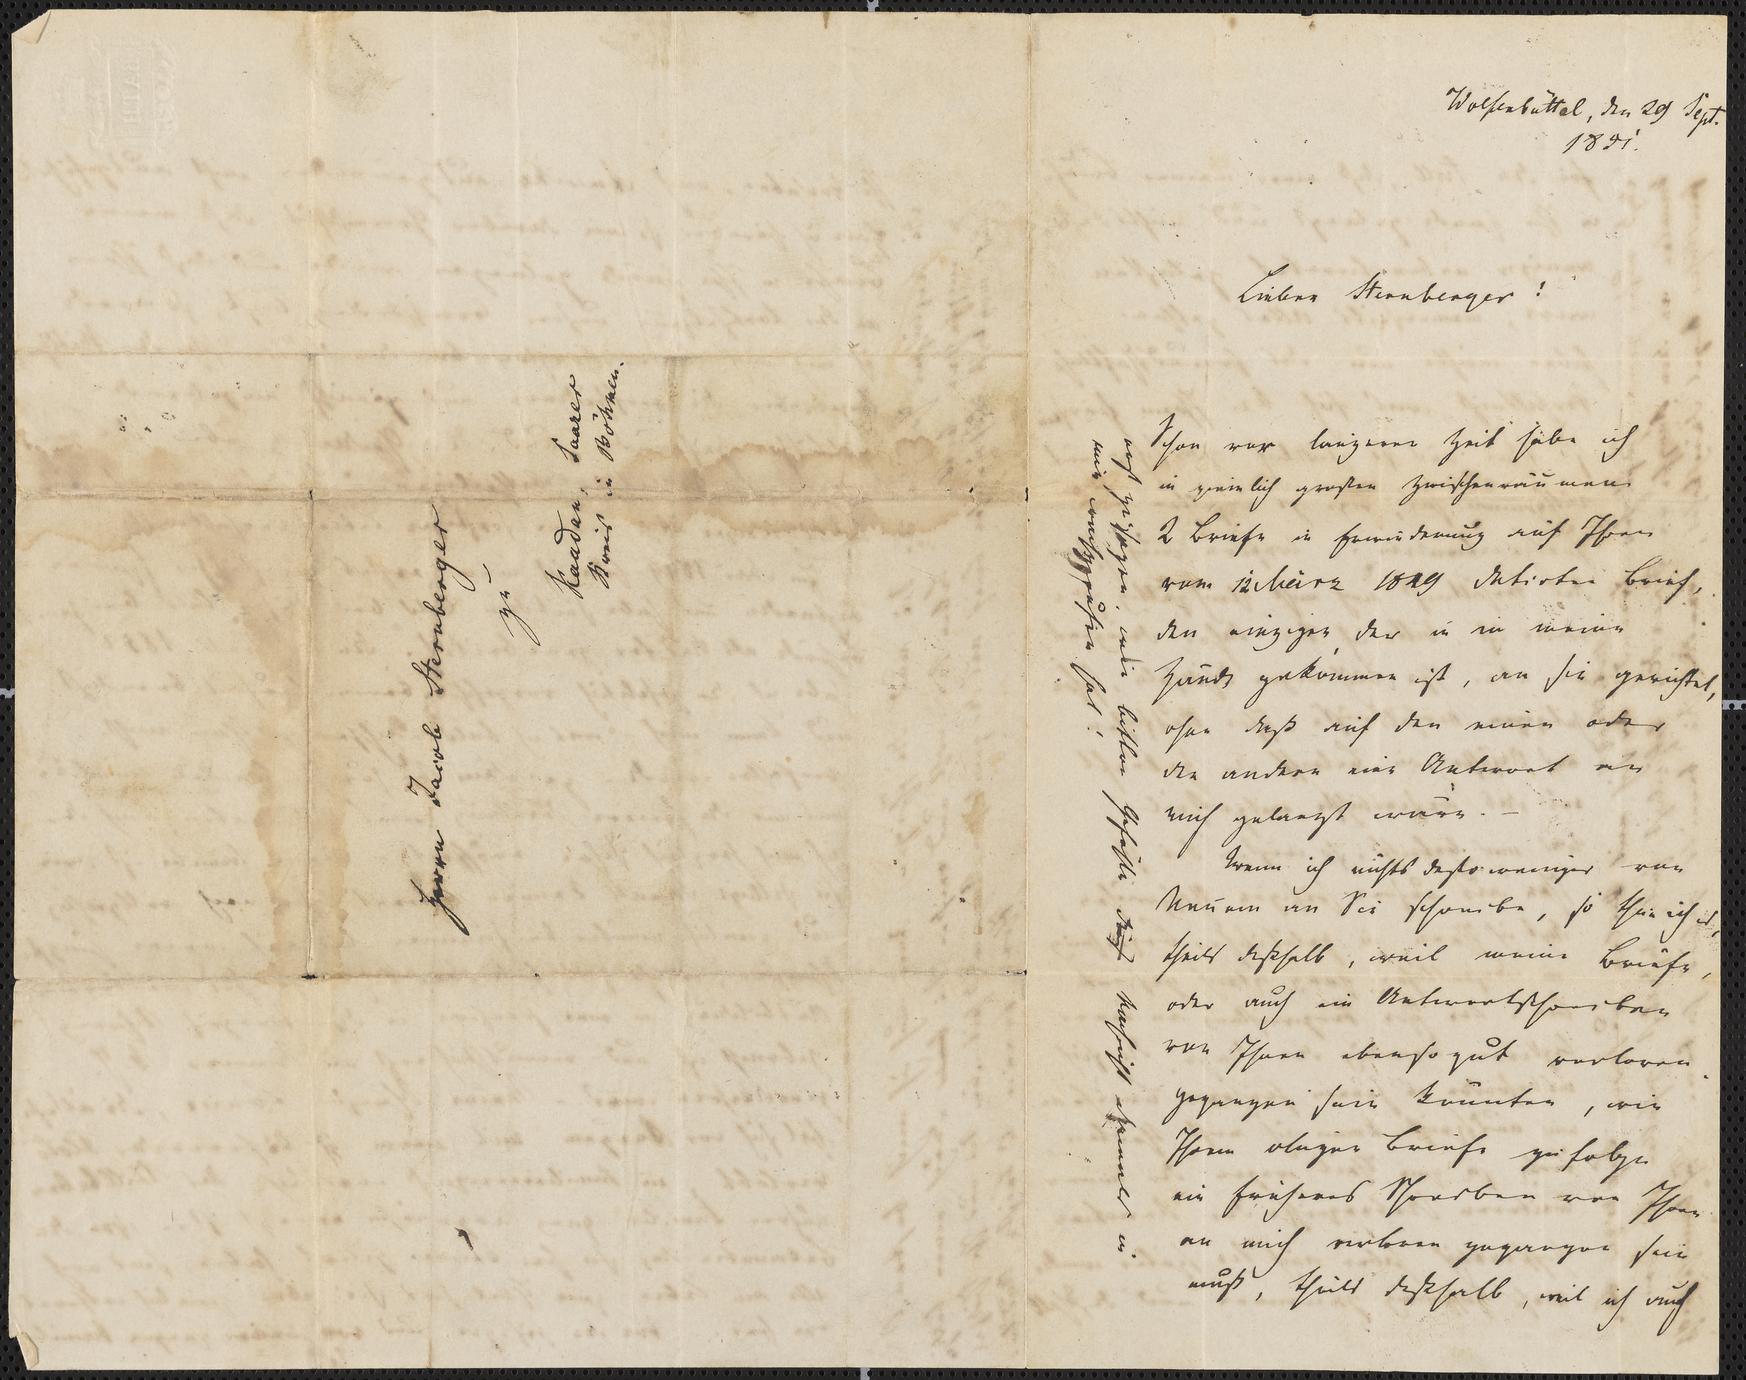 Wolfenbüttel, den 29 Sept.
1851.
Lieber Sternberger!
Schon vor längerer Zeit habe ich
in ziemlich großen Zwischenräumen
2 Briefe in Erwiederung auf Ihren
vom 12 März 1849 datirten Brief,
den einzigen der in meine
Hände gekommen ist, an Sie gerichtet,
ohne daß auf den einen oder
den andern eine Antwort an
mich gelangt wäre. —
Wenn ich nichts desto weniger von
Neuem an Sie schreibe, so thue ich es,
theils deßhalb, weil meine Briefe,
oder auch ein Antwortschreiben
von Ihnen ebenso gut verloren
gegangen sein könnten, wie
Ihrem obigen Briefe zu folge
ein früheres Schreiben von Ihnen
an mich verloren gegangen sein
muß, theils deßhalb, weil ich auch
bitter Gefühle Nachricht in
mir hat!
Herrn Jacob Sternberger
zu
Kaadan, Saazer
Kreis in Böhmen.